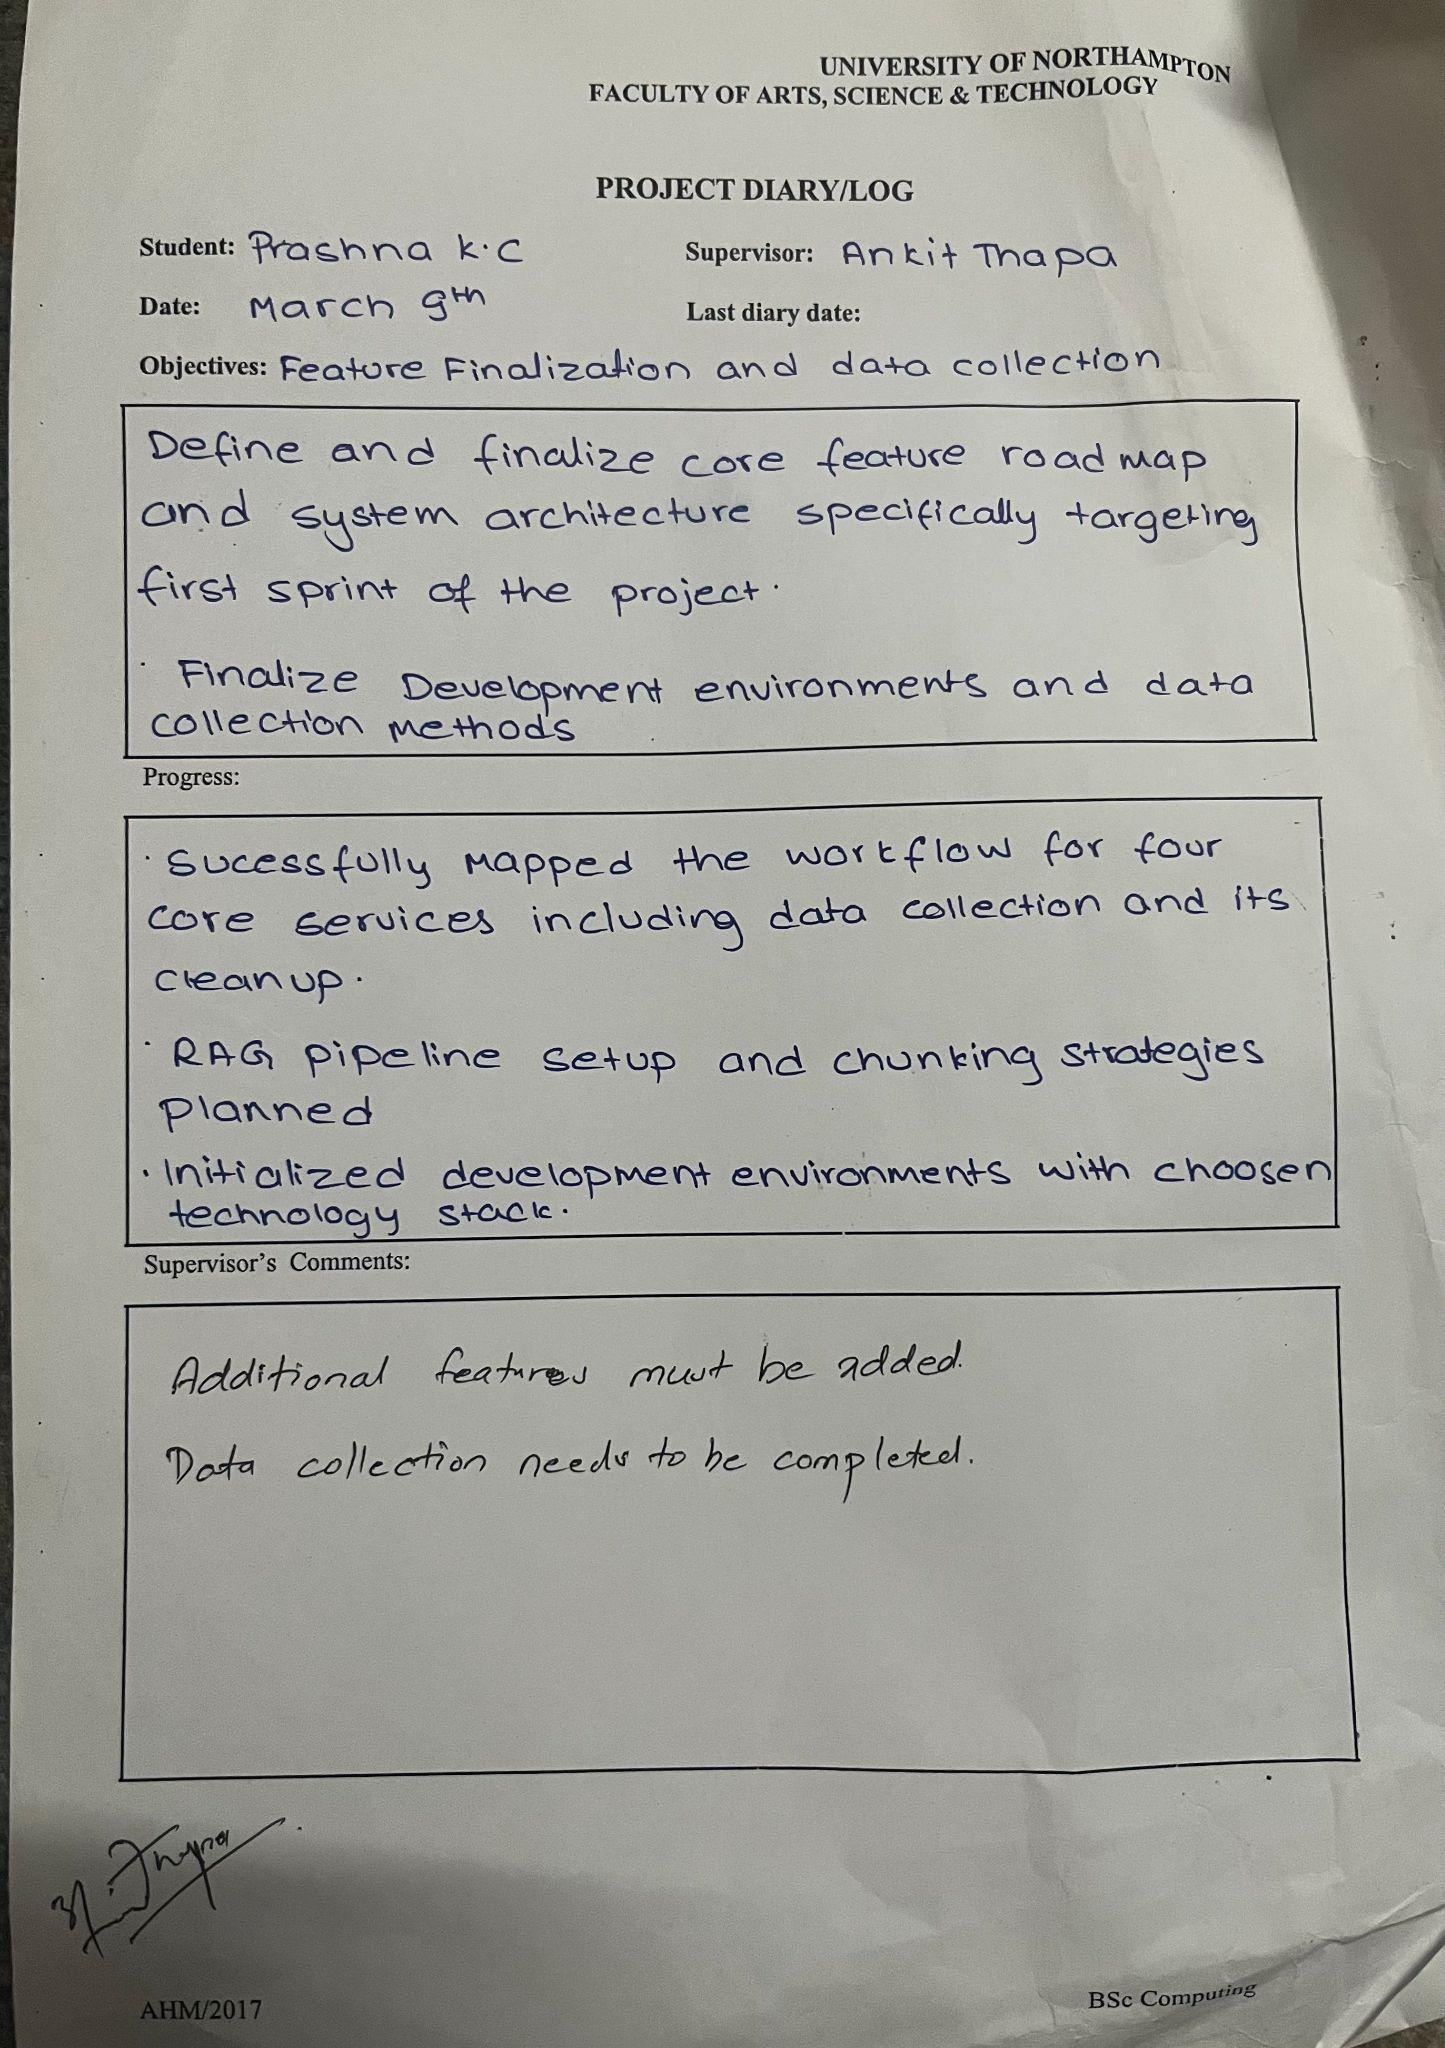 UNIVERSITY OF NORTHAMPTON
FACULTY OF ARTS, SCIENCE & TECHNOLOGY
PROJECT DIARY/LOG
Student: Prashna K.C
Supervisor: Ankit Thapa
Date: March 9th
Last diary date:
Objectives: Feature Finalization and data collection
Define and finalize core feature roadmap
and system architecture specifically targeting
first sprint of the project.
· Finalize Development environments and data
collection methods
Progress:
· Sucessfully mapped the workflow for four
core services including data collection and its
cleanup.
· RAG pipeline setup and chunking strategies
planned
· Initialized development environments with choosen
technology stack.
Supervisor's Comments:
Additional features must be added.
Data collection needs to be completed.
Thapa
AHM/2017
BSc Computing